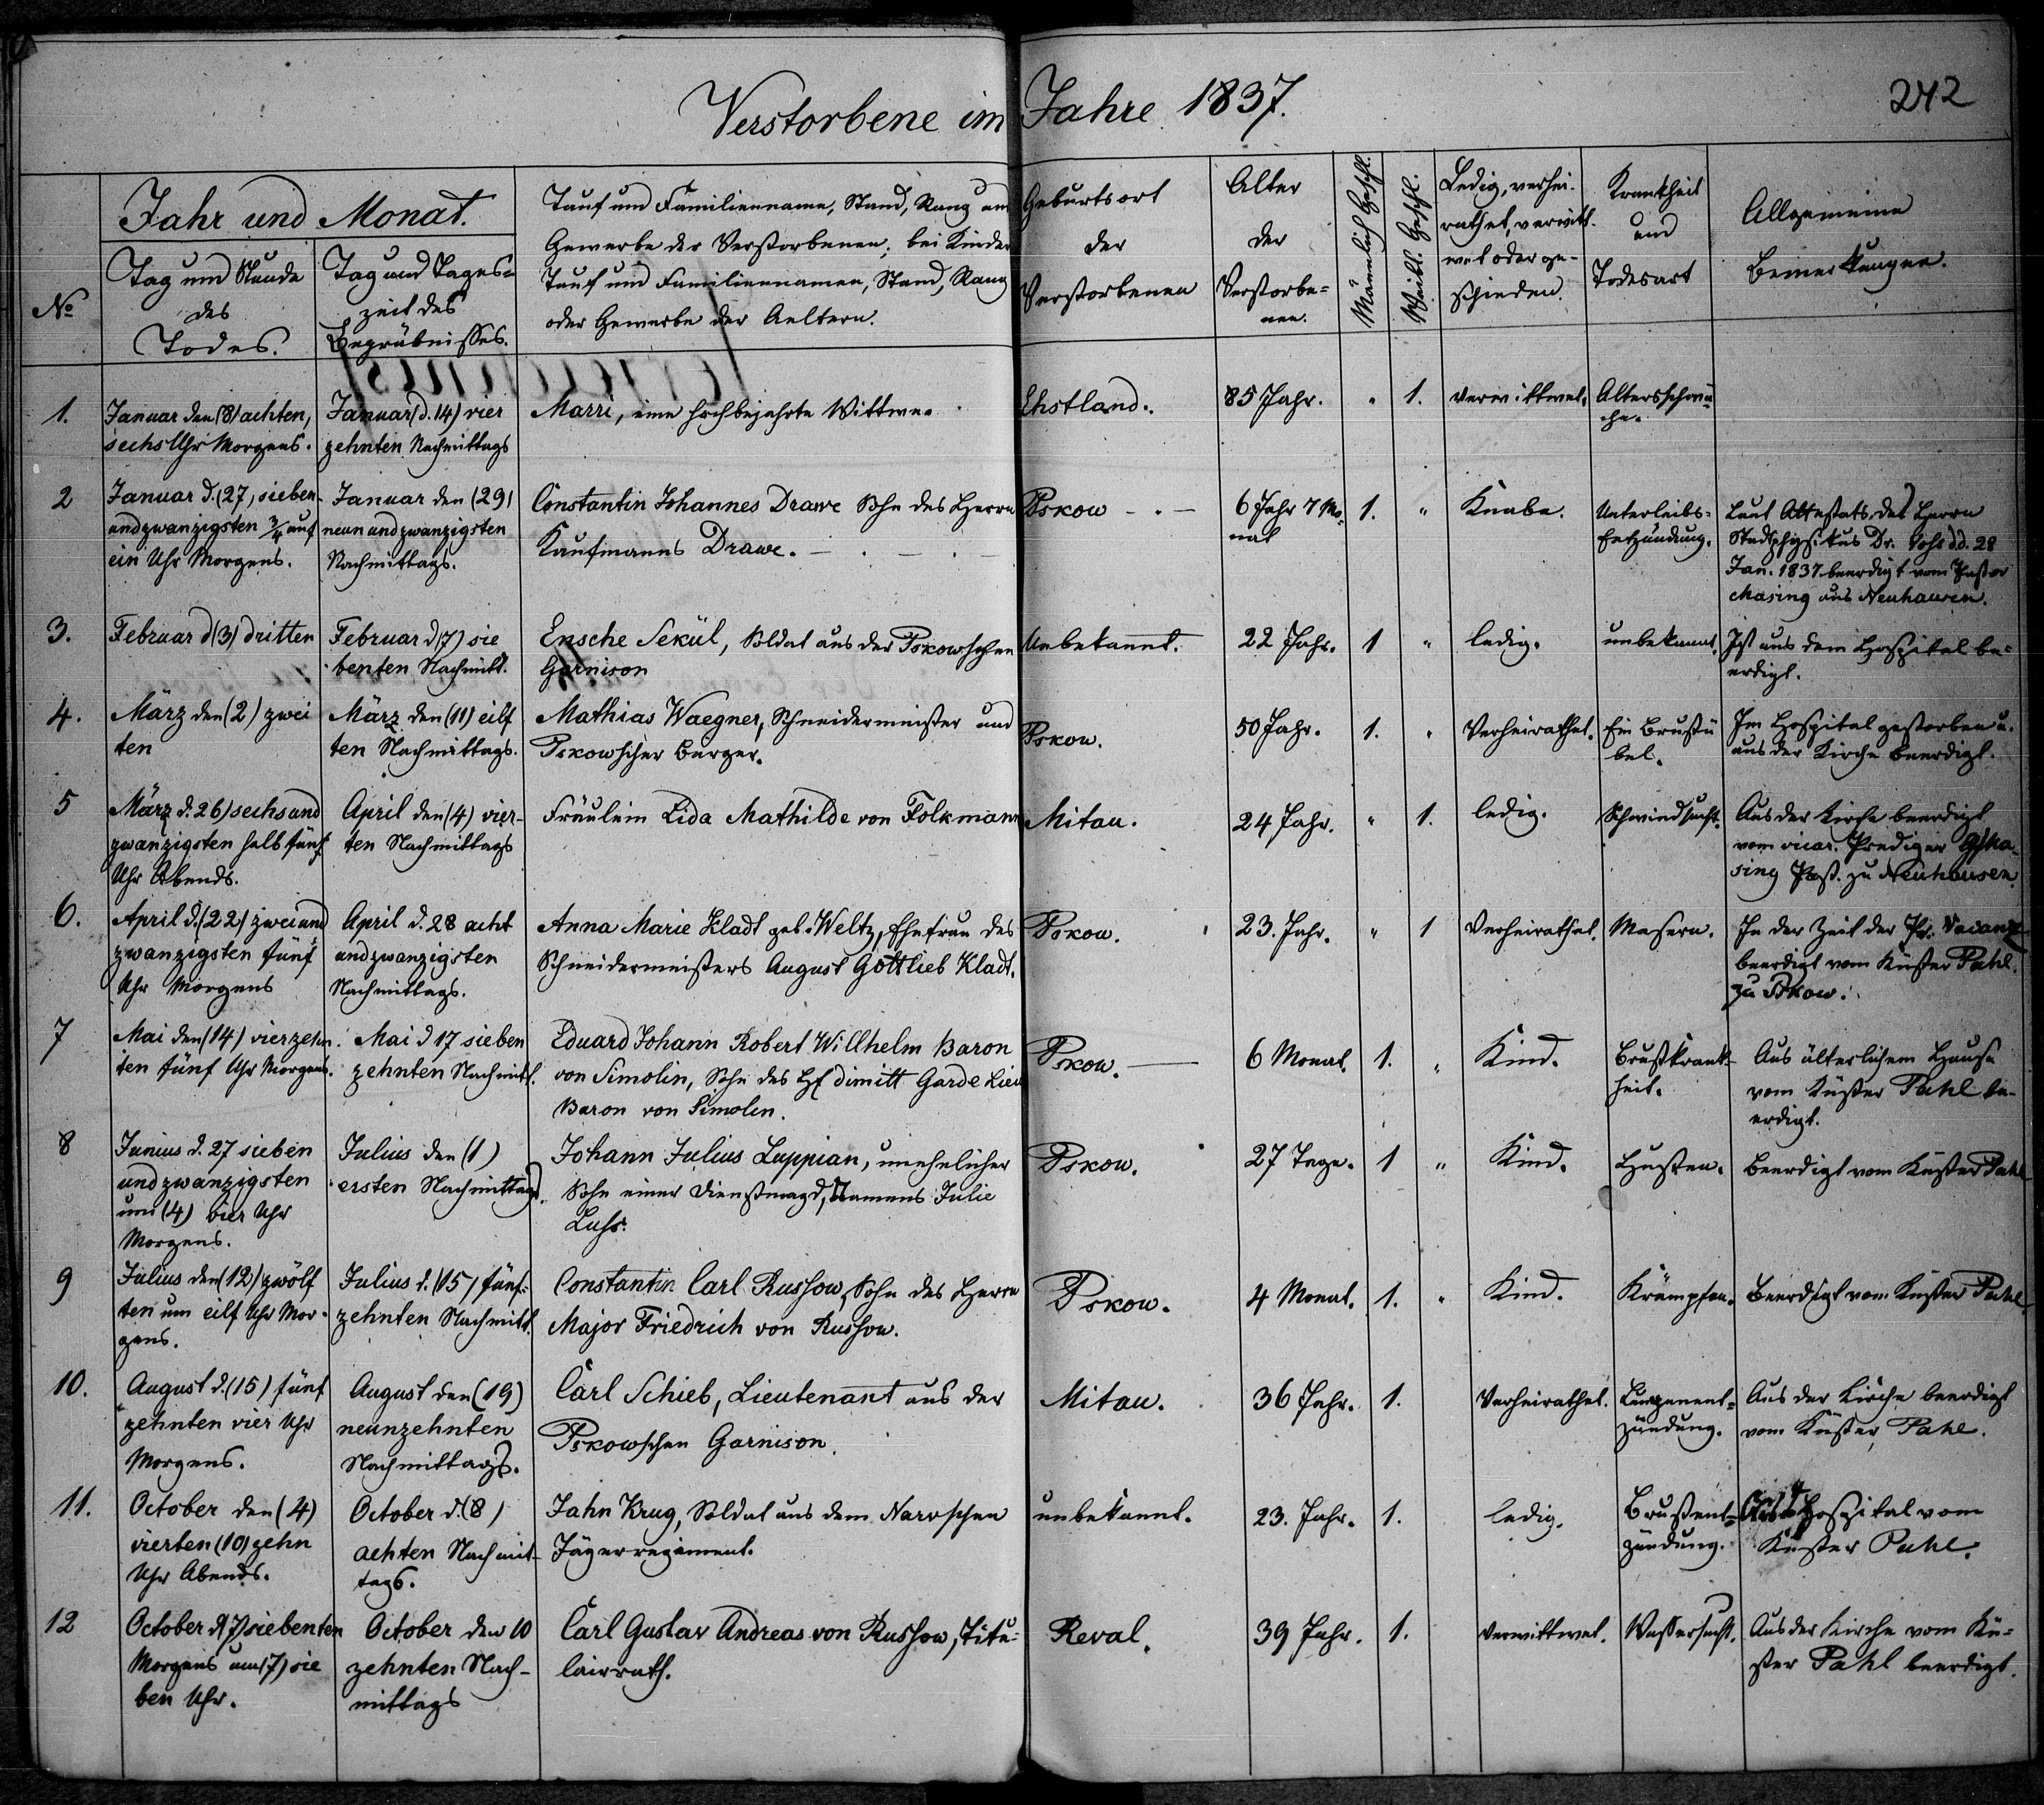 Verstorbene im Jahre 1837.
242
№
Jahr und Monat.
Tag und Stunde
des
Todes.
Tag und Tages-
zeit des
Begräbnisses.
Tauf und Familienname, Stand, Rang und
Gewerbe der Verstorbenen; bei Kinder
Tauf und Familiennamen, Stand, Rang
oder Gewerbe der Aeltern.
Geburtsort
der
Verstorbenen
Alter
der
Verstorbe-
nen.
Männlich Geschl.
Weibl. Geschl.
Ledig, verhei-
rathet, verwitt-
wet oder ge-
schieden.
Krankheit
und
Todesart
Allgemeine
Bemerkungen.
1.
Januar den (8) achten,
sechs Uhr Morgens.
Januar (d. 14) vier
zehnten Nachmittags
Marri, eine hochbejahrte Wittwe.
Ehstland.
85 Jahr.
" 1.
verwittwet.
Altersschwä-
che.
2
Januar d. (27) sieben-
undzwanzigsten 3/4 auf
ein Uhr Morgens.
Januar den (29)
neun undzwanzigsten
Nachmittags.
Constantin Johannes Drawe Sohn des Herrn
Kaufmanns Drawe.
Pskow
6 Jahr 7 Mo-
nat
1. "
Knabe.
Unterleibs-
Entzündung.
Laut Attestats des Herrn
Stadtphysikus Dr. dd. 28
Jan. 1837 beerdigt vom Pastor
Masing aus Neuhausen.
3.
Februar d (3) dritten
Februar d (7) sie
benten Nachmitt.
Ensche Sekül, Soldat aus der Pskowschen
Garnison
Unbekannt.
22 Jahr.
1 "
ledig.
unbekannt.
Ist aus dem Hospital be-
erdigt.
4.
März den (2) zwei
ten
März den (11) eilf
ten Nachmittags.
Mathias Waegner, Schneidermeister und
Pskowscher Bürger.
Pskow.
50 Jahr.
1. "
Verheirathet.
Ein Brustü
bel.
Im Hospital gestorben u.
aus der Kirche beerdigt.
5
März d. 26) sechsund
zwanzigsten halb fünf
Uhr Abends.
April den (4) vier-
ten Nachmittags
Fräulein Lida Mathilde von Folkmann
Mitau.
24 Jahr.
" 1.
ledig.
Schwindsucht.
Aus der Kirche beerdigt
vom vicar. Prediger Ma-
sing Past. zu Neuhausen.
6.
April d. (22) zwei und
zwanzigsten fünf
Uhr Morgens
April d. 28 acht
undzwanzigsten
Nachmittags.
Anna Marie Kladt geb. Weltz, Ehefrau des
Schneidermeisters August Gottlieb Kladt.
Pskow.
23. Jahr.
" 1
Verheirathet.
Masern.
In der Zeit der Pr. Vacanz
beerdigt vom Küster Pahl.
zu Pskow.
7
Mai den (14) vierzehn
ten fünf Uhr Morgens.
Mai d 17 sieben
zehnten Nachmitt.
Eduard Johann Robert Willhelm Baron
von Simolin, Sohn des H. dimitt Garde Lieu
Baron von Simolin.
Pskow.
6 Monat.
1. "
Kind.
Brustkrank-
heit.
Aus älterlichem Hause
vom Küster Pahl be-
erdigt.
8
Junius d. 27 sieben
undzwanzigsten
um (4) vier Uhr
Morgens.
Julius den (1)
ersten Nachmittags.
Johann Julius Luppian, unehelicher
Sohn einer Dienstmagd, Namens Julie
Luhs.
Pskow.
27 Tage.
1 "
Kind.
Husten.
Beerdigt vom Küster Pahl
9
Julius den (12) zwölf
ten um eilf Uhr Mor-
gens.
Julius d. (15) fünf-
zehnten Nachmitt.
Constantin Carl Russow, Sohn des Herrn
Major Friedrich von Russow.
Pskow.
4 Monat.
1. "
Kind.
Krämpfen.
Beerdigt vom Küster Pahl
10.
August d. (15) fünf
zehnten vier Uhr
Morgens.
August den (19)
neunzehnten
Nachmittags.
Carl Schieb, Lieutenant aus der
Pskowschen Garnison.
Mitau.
36 Jahr.
1.
Verheirathet.
Lungenent-
zündung.
Aus der Kirche beerdigt
vom Küster Pahl.
11.
October den (4)
vierten (10) zehn
Uhr Abends.
October d. (8)
achten Nachmit-
tags.
Jahn Krug, Soldat aus dem Narvschen
Jägerregiment.
unbekannt.
23. Jahr.
1.
ledig.
Brustent-
zündung.
Hospital vom
Küster Pahl.
12
October d (7) siebenten
Morgens um (7) sie
ben Uhr.
October den 10
zehnten Nach-
mittags
Carl Gustav Andreas von Russow, Titu-
lairrath.
Reval.
39 Jahr.
1.
verwittwet.
Wassersucht.
Aus der Kirche vom Kü-
ster Pahl beerdigt.